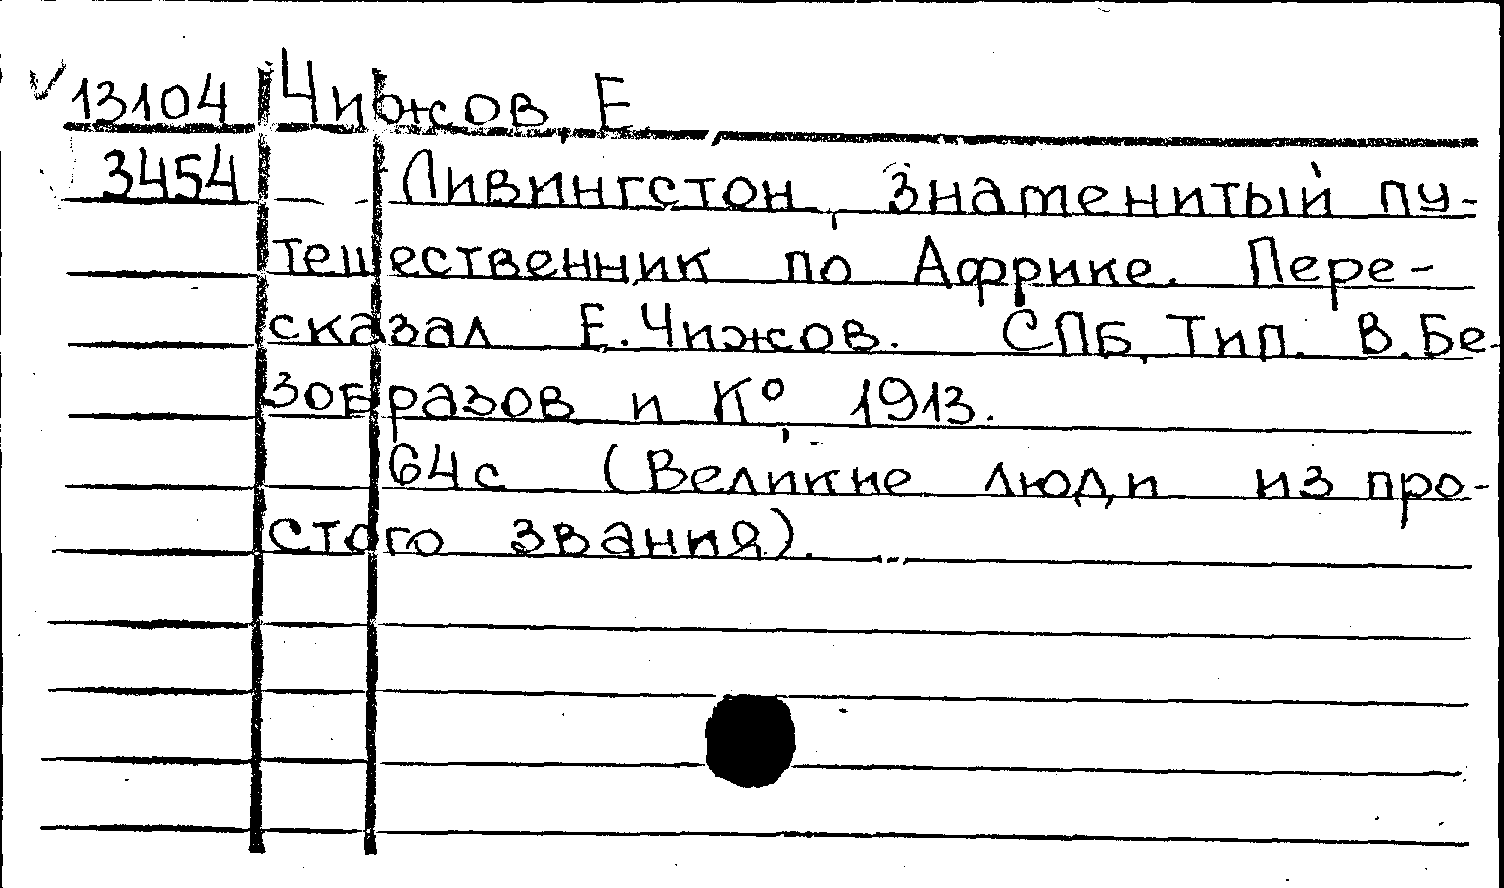 13104 Чижов, Е.
3454 Ливингстон, знаменитый пу-
тешественник по Африке. Пере-
сказал Е. Чижов. СПБ, Тип. В. Бе-
зобразов и К°, 1913.
64 с (Великие люди из про-
стого звания).